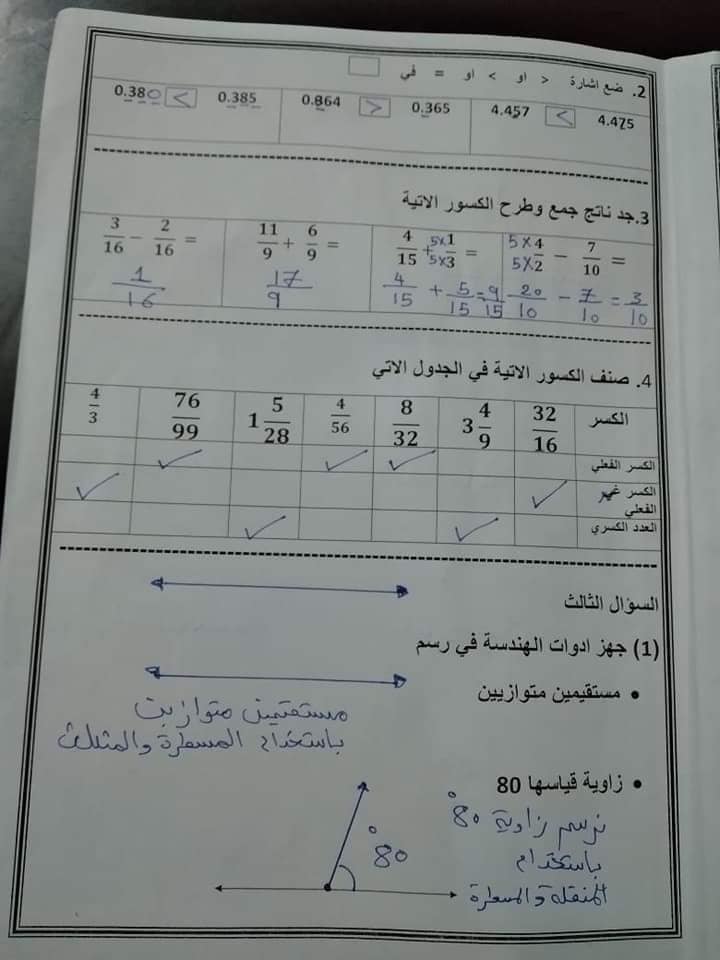 2. ضع اشارة < او > او = في
0.380 < 0.385 0.864 > 0.365 4.457 < 4.475
3.جد ناتج جمع وطرح الكسور الاتية
3/16 − 2/16 = 11/9 + 6/9 = 4/15 + 5×1/5×3 = 5×4/5×2 − 7/10 =
1/16 17/9 4/15 + 5/15 = 9/15 20/10 − 7/10 = 3/10
4. صنف الكسور الاتية في الجدول الاتي
الكسر 32/16 3 4/9 8/32 4/56 1 5/28 76/99 4/3
الكسر الفعلي ✓ ✓ ✓
الكسر غير الفعلي ✓ ✓
العدد الكسري ✓ ✓
السؤال الثالث
(1) جهز ادوات الهندسة في رسم
• مستقيمين متوازيين
مستقيمين متوازين
باستخدام المسطرة والمثلث
• زاوية قياسها 80
نرسم زاوية 80°
باستخدام
المنقلة والمسطرة
80°